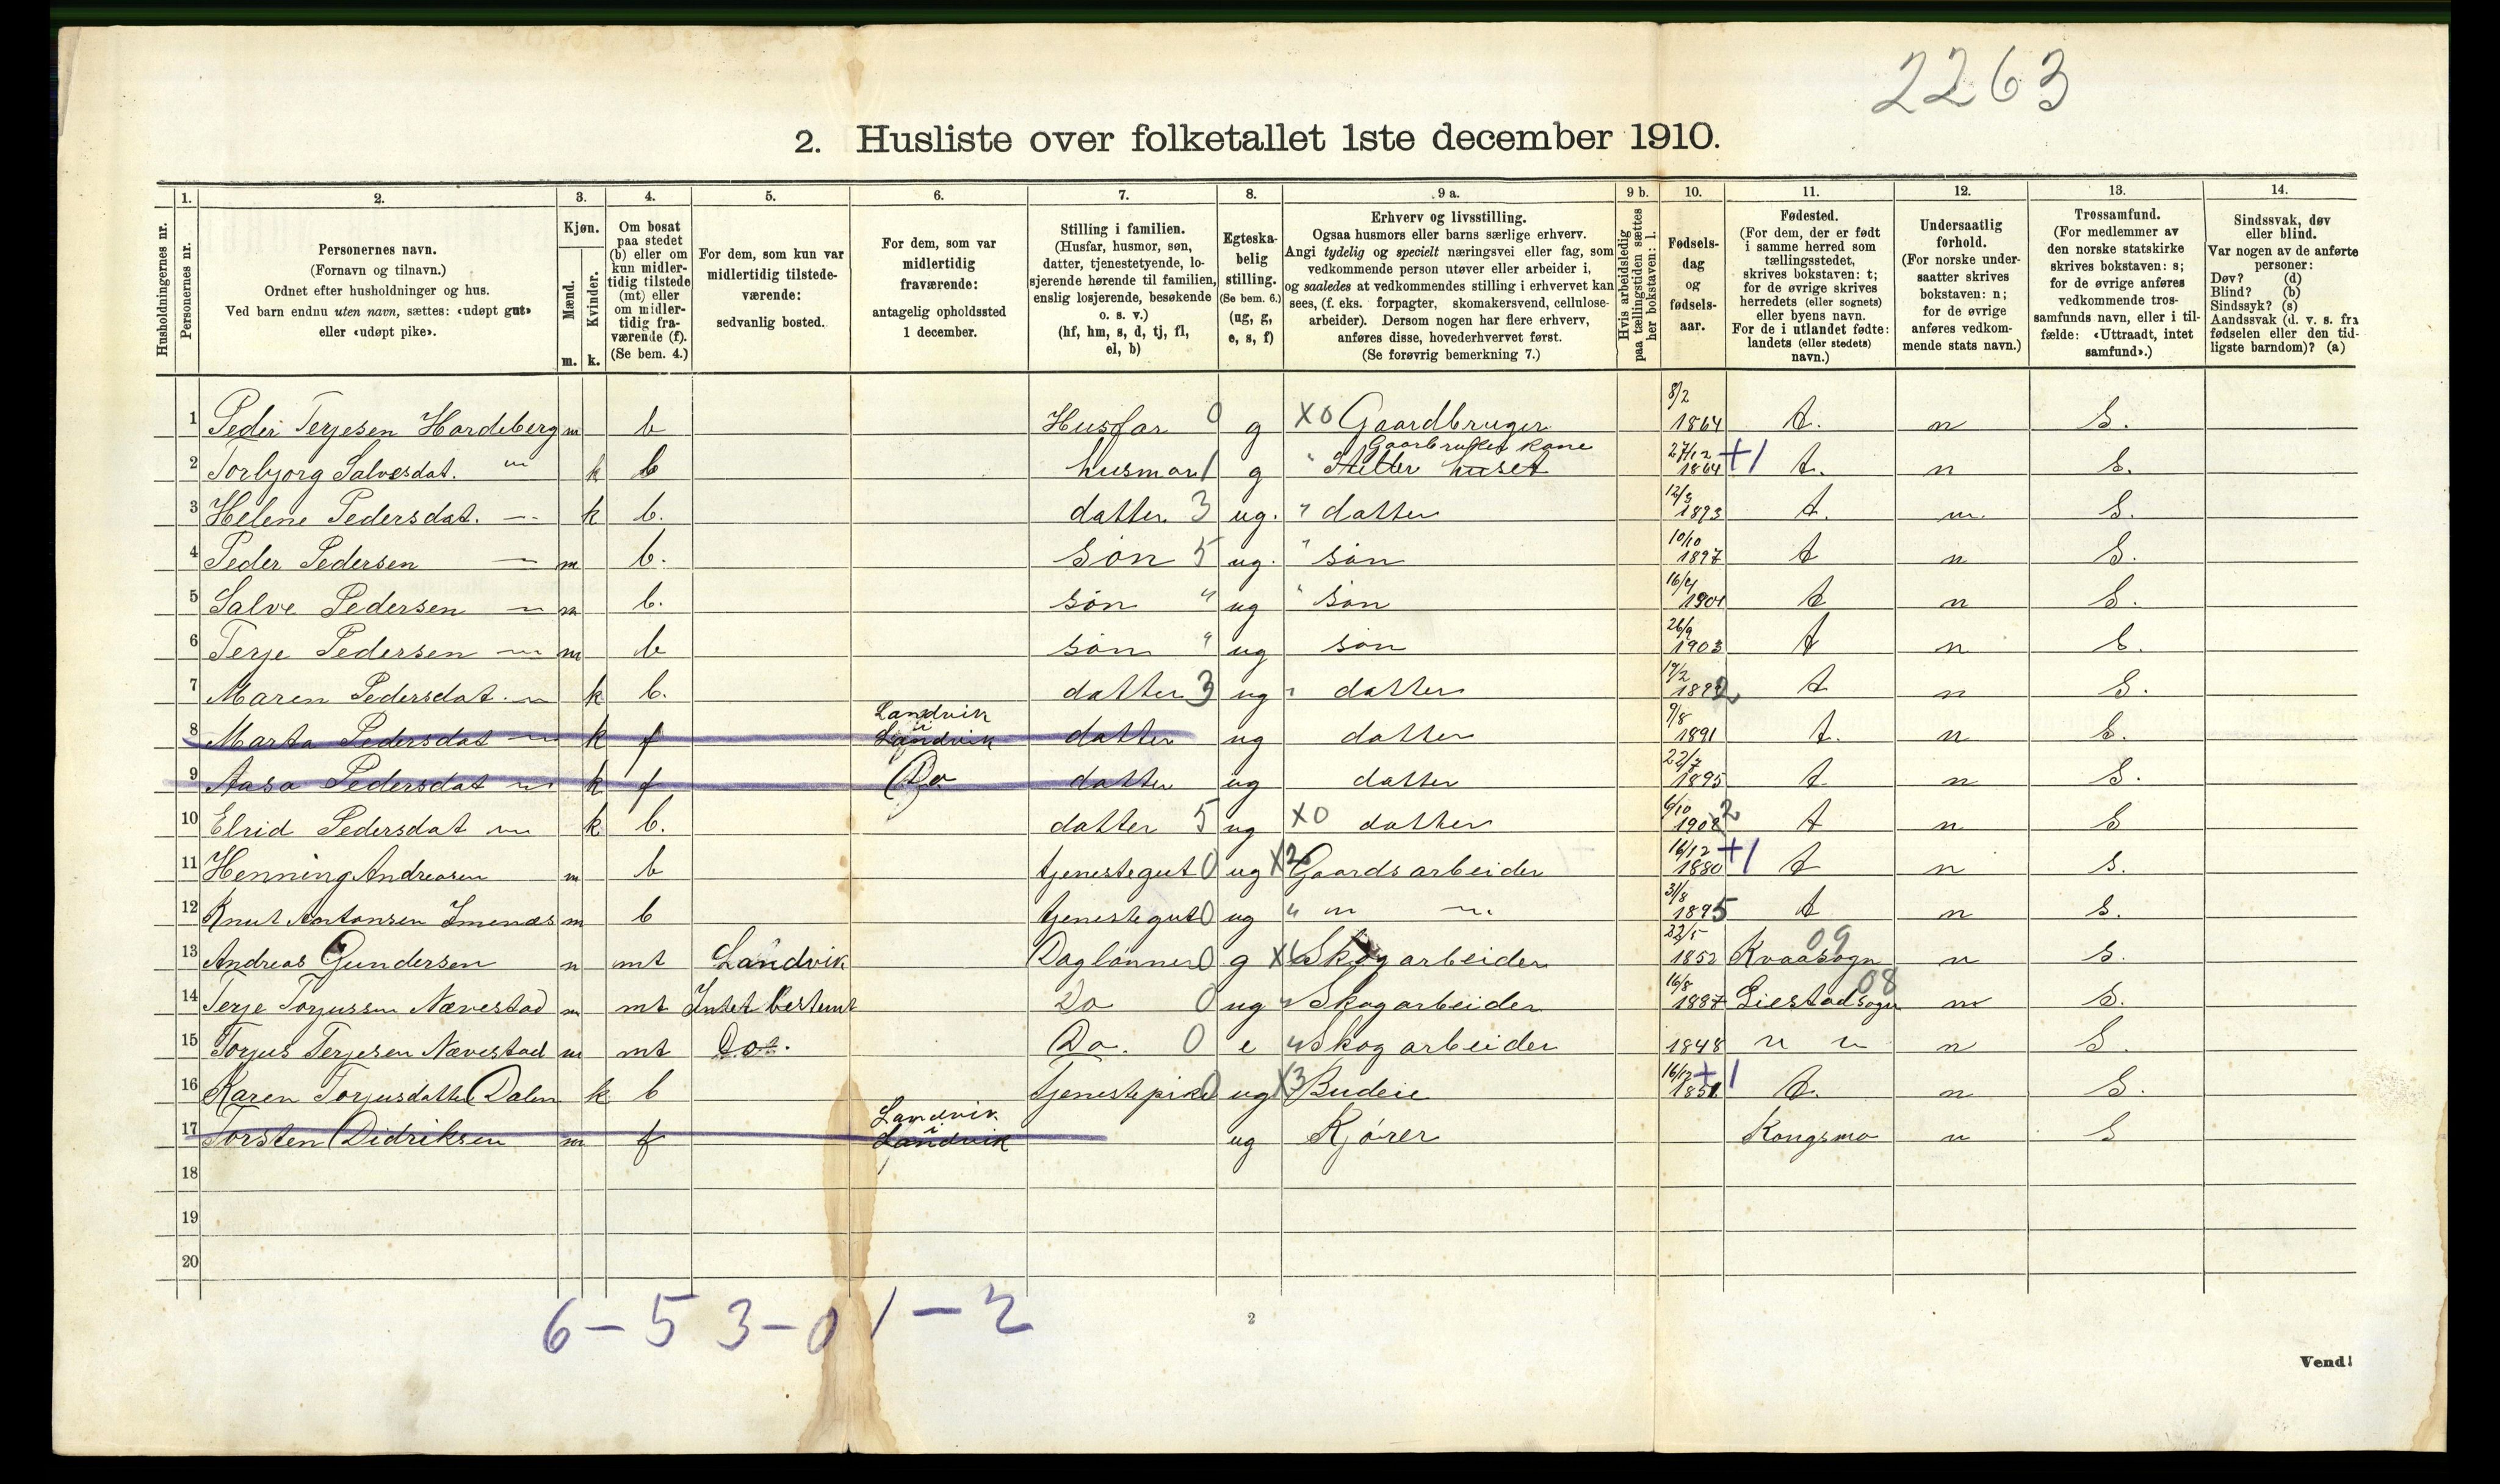 2263
2. Husliste over folketallet 1ste december 1910.
1. 2. 3. 4. 5. 6. 7. 8. 9 a. 9 b. 10. 11. 12. 13. 14.
Husholdningernes nr.
Personernes nr.
Personernes navn.
(Fornavn og tilnavn.)
Ordnet efter husholdninger og hus.
Ved barn endnu uten navn, sættes: «udøpt gut»
eller «udøpt pike».
Kjøn.
Mænd.
Kvinder.
m. k.
Om bosat
paa stedet
(b) eller om
kun midler-
tidig tilstede
(mt) eller
om midler-
tidig fra-
værende (f).
(Se bem. 4.)
For dem, som kun var
midlertidig tilstede-
værende:
sedvanlig bosted.
For dem, som var
midlertidig
fraværende:
antagelig opholdssted
1 december.
Stilling i familien.
(Husfar, husmor, søn,
datter, tjenestetyende, lo-
sjerende hørende til familien,
enslig losjerende, besøkende
o. s. v.)
(hf, hm, s, d, tj, fl,
el, b)
Egteska-
belig
stilling.
(Se bem. 6.)
(ug, g,
e, s, f)
Erhverv og livsstilling.
Ogsaa husmors eller barns særlige erhverv.
Angi tydelig og specielt næringsvei eller fag, som
vedkommende person utøver eller arbeider i,
og saaledes at vedkommendes stilling i erhvervet kan
sees, (f. eks. forpagter, skomakersvend, cellulose-
arbeider). Dersom nogen har flere erhverv,
anføres disse, hovederhvervet først.
(Se forøvrig bemerkning 7.)
Hvis arbeidsledig
paa tællingstiden sættes
her bokstaven: l.
Fødsels-
dag
og
fødsels-
aar.
Fødested.
(For dem, der er født
i samme herred som
tællingsstedet,
skrives bokstaven: t;
for de øvrige skrives
herredets (eller sognets)
eller byens navn.
For de i utlandet fødte:
landets (eller stedets)
navn.)
Undersaatlig
forhold.
(For norske under-
saatter skrives
bokstaven: n;
for de øvrige
anføres vedkom-
mende stats navn.)
Trossamfund.
(For medlemmer av
den norske statskirke
skrives bokstaven: s;
for de øvrige anføres
vedkommende tros-
samfunds navn, eller i til-
fælde: «Uttraadt, intet
samfund».)
Sindssvak, døv
eller blind.
Var nogen av de anførte
personer:
Døv? (d)
Blind? (b)
Sindssyk? (s)
Aandssvak (d. v. s. fra
fødselen eller den tid-
ligste barndom)? (a)
1 Peder Terjesen Hardeberg m b Husfar 0 g X0 Gaardbruger 8/2 1864 t. n S.
2 Torbjorg Salvesdat. " k b husmor 1 g " Gaarbruger kone Steller huset 27/12 1864 +1 t. n S.
3 Helene Pedersdat. — k b. datter 3 ug. " datter 12/3 1893 t. n. S.
4 Peder Pedersen — m b. søn 5 ug. " søn 10/10 1897 t n S.
5 Salve Pedersen — m b. søn " ug " søn 16/4 1901 t n S.
6 Terje Pedersen — m b søn " ug søn 26/9 1903 t n S.
7 Maren Pedersdat. — k b. datter 3 ug " datter 19/2 1892 t n S.
8 Marta Pedersdat — k f Landvik i Landvik datter ug datter 9/8 1891 t. n S.
9 Aasa Pedersdat — k f Do datter ug datter 22/7 1895 t n S.
10 Elrid Pedersdat — k b. datter 5 ug X0 datter 6/10 1902 t n S
11 Henning Andreasen m b tjenestegut 0 ug X2 Gaardsarbeider 16/12 1880 +1 t n s.
12 Knut Antonsen Imenæs m b tjenestegut 0 ug " — — 31/8 1895 t n s.
13 Andreas Gundersen m mt Landvik Daglønner 0 g X Skogarbeider 22/5 1852 Kvaasogn 09 n s.
14 Terje Torjussen Nævestad m mt Intet bestemt Do 0 ug " Skogarbeider 16/8 1887 Giestadsogn 08 n S.
15 Torjus Terjesen Nævestad m mt Do. Do. 0 e " Skogarbeider 1848 " " n S.
16 Karen Torjusdatter Dalen k b Tjenestepike 0 ug X3 Budeie 16/12 1851 +1 t. n S.
17 Torsten Didriksen m f Landvik i Landvik ug Kjører Kongsmo n S
18
19
20
6-53-01-2
2
Vend!